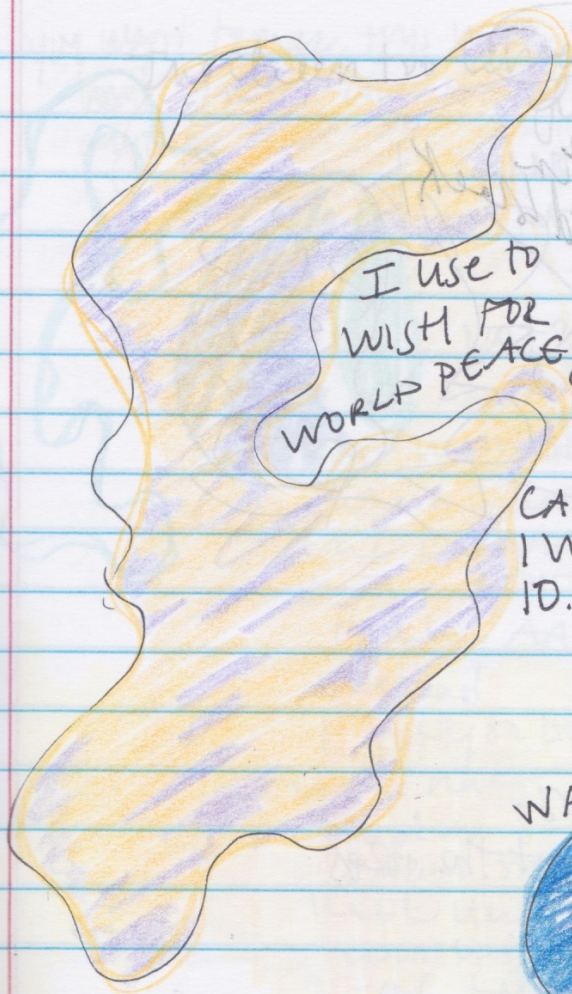 I use to
WISH FOR
WORLD PEACE
CA
I W
10.
WA